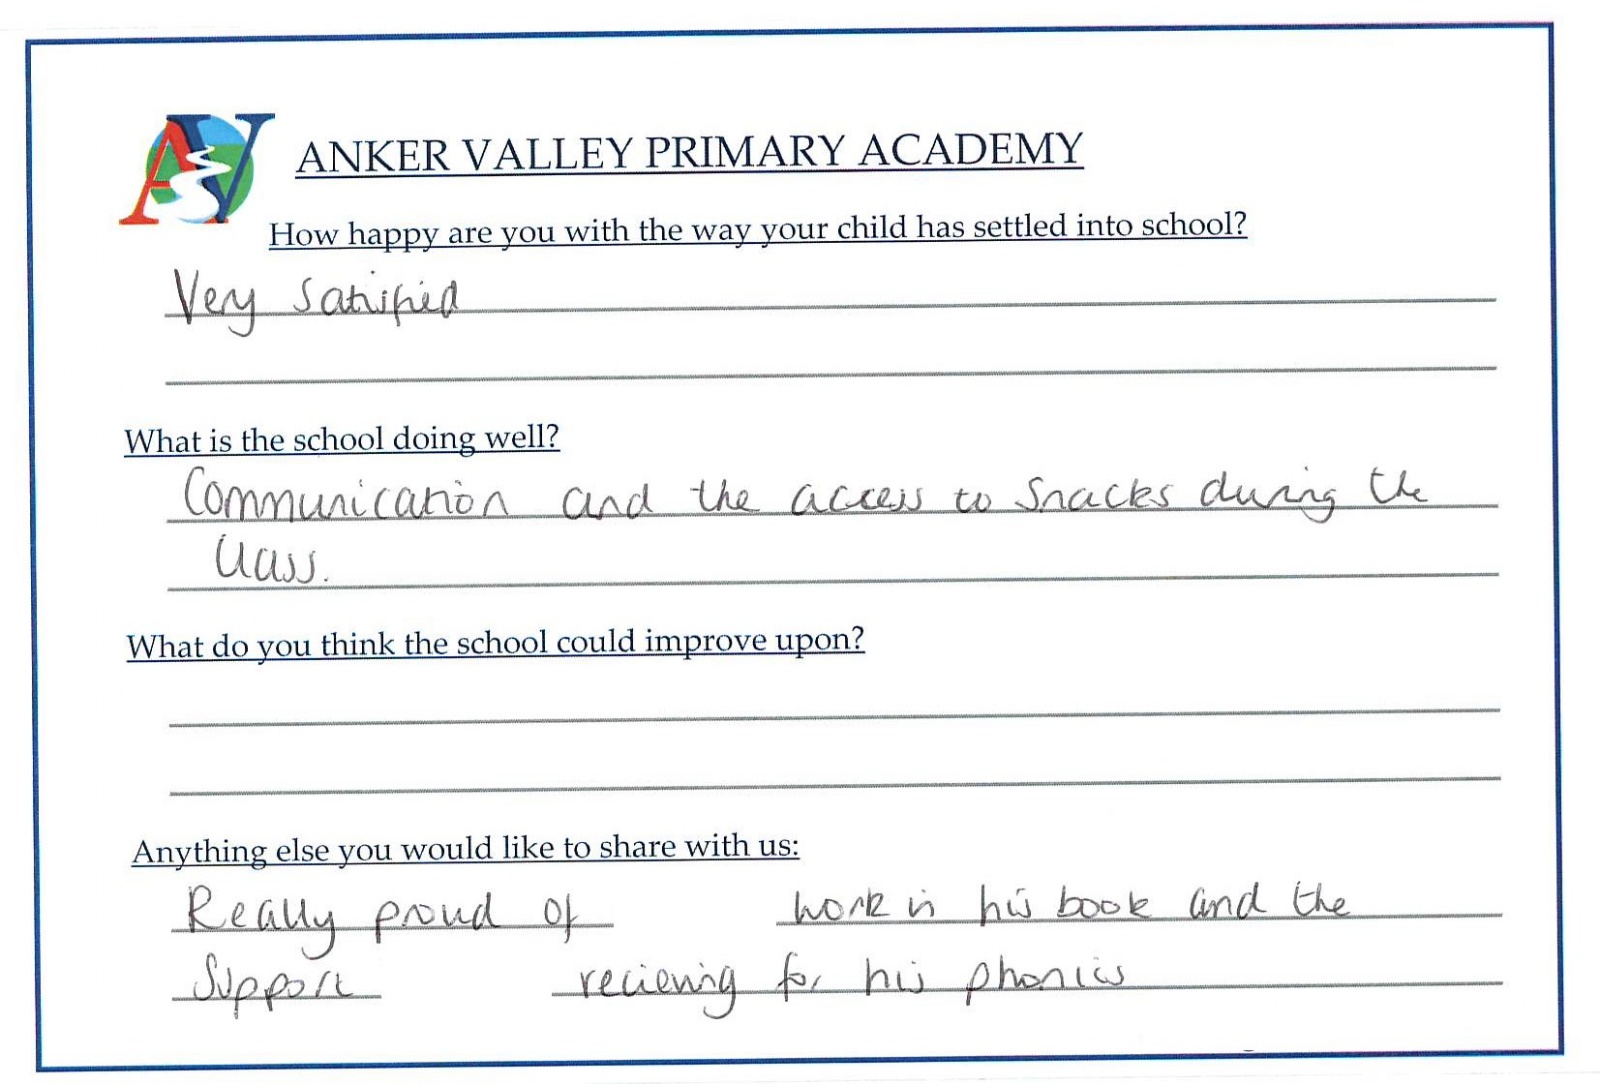 AV
ANKER VALLEY PRIMARY ACADEMY
How happy are you with the way your child has settled into school?
Very satisfied
What is the school doing well?
Communication and the access to snacks during the
class.
What do you think the school could improve upon?
Anything else you would like to share with us:
Really proud of work in his book and the
Support recieving for his phonics